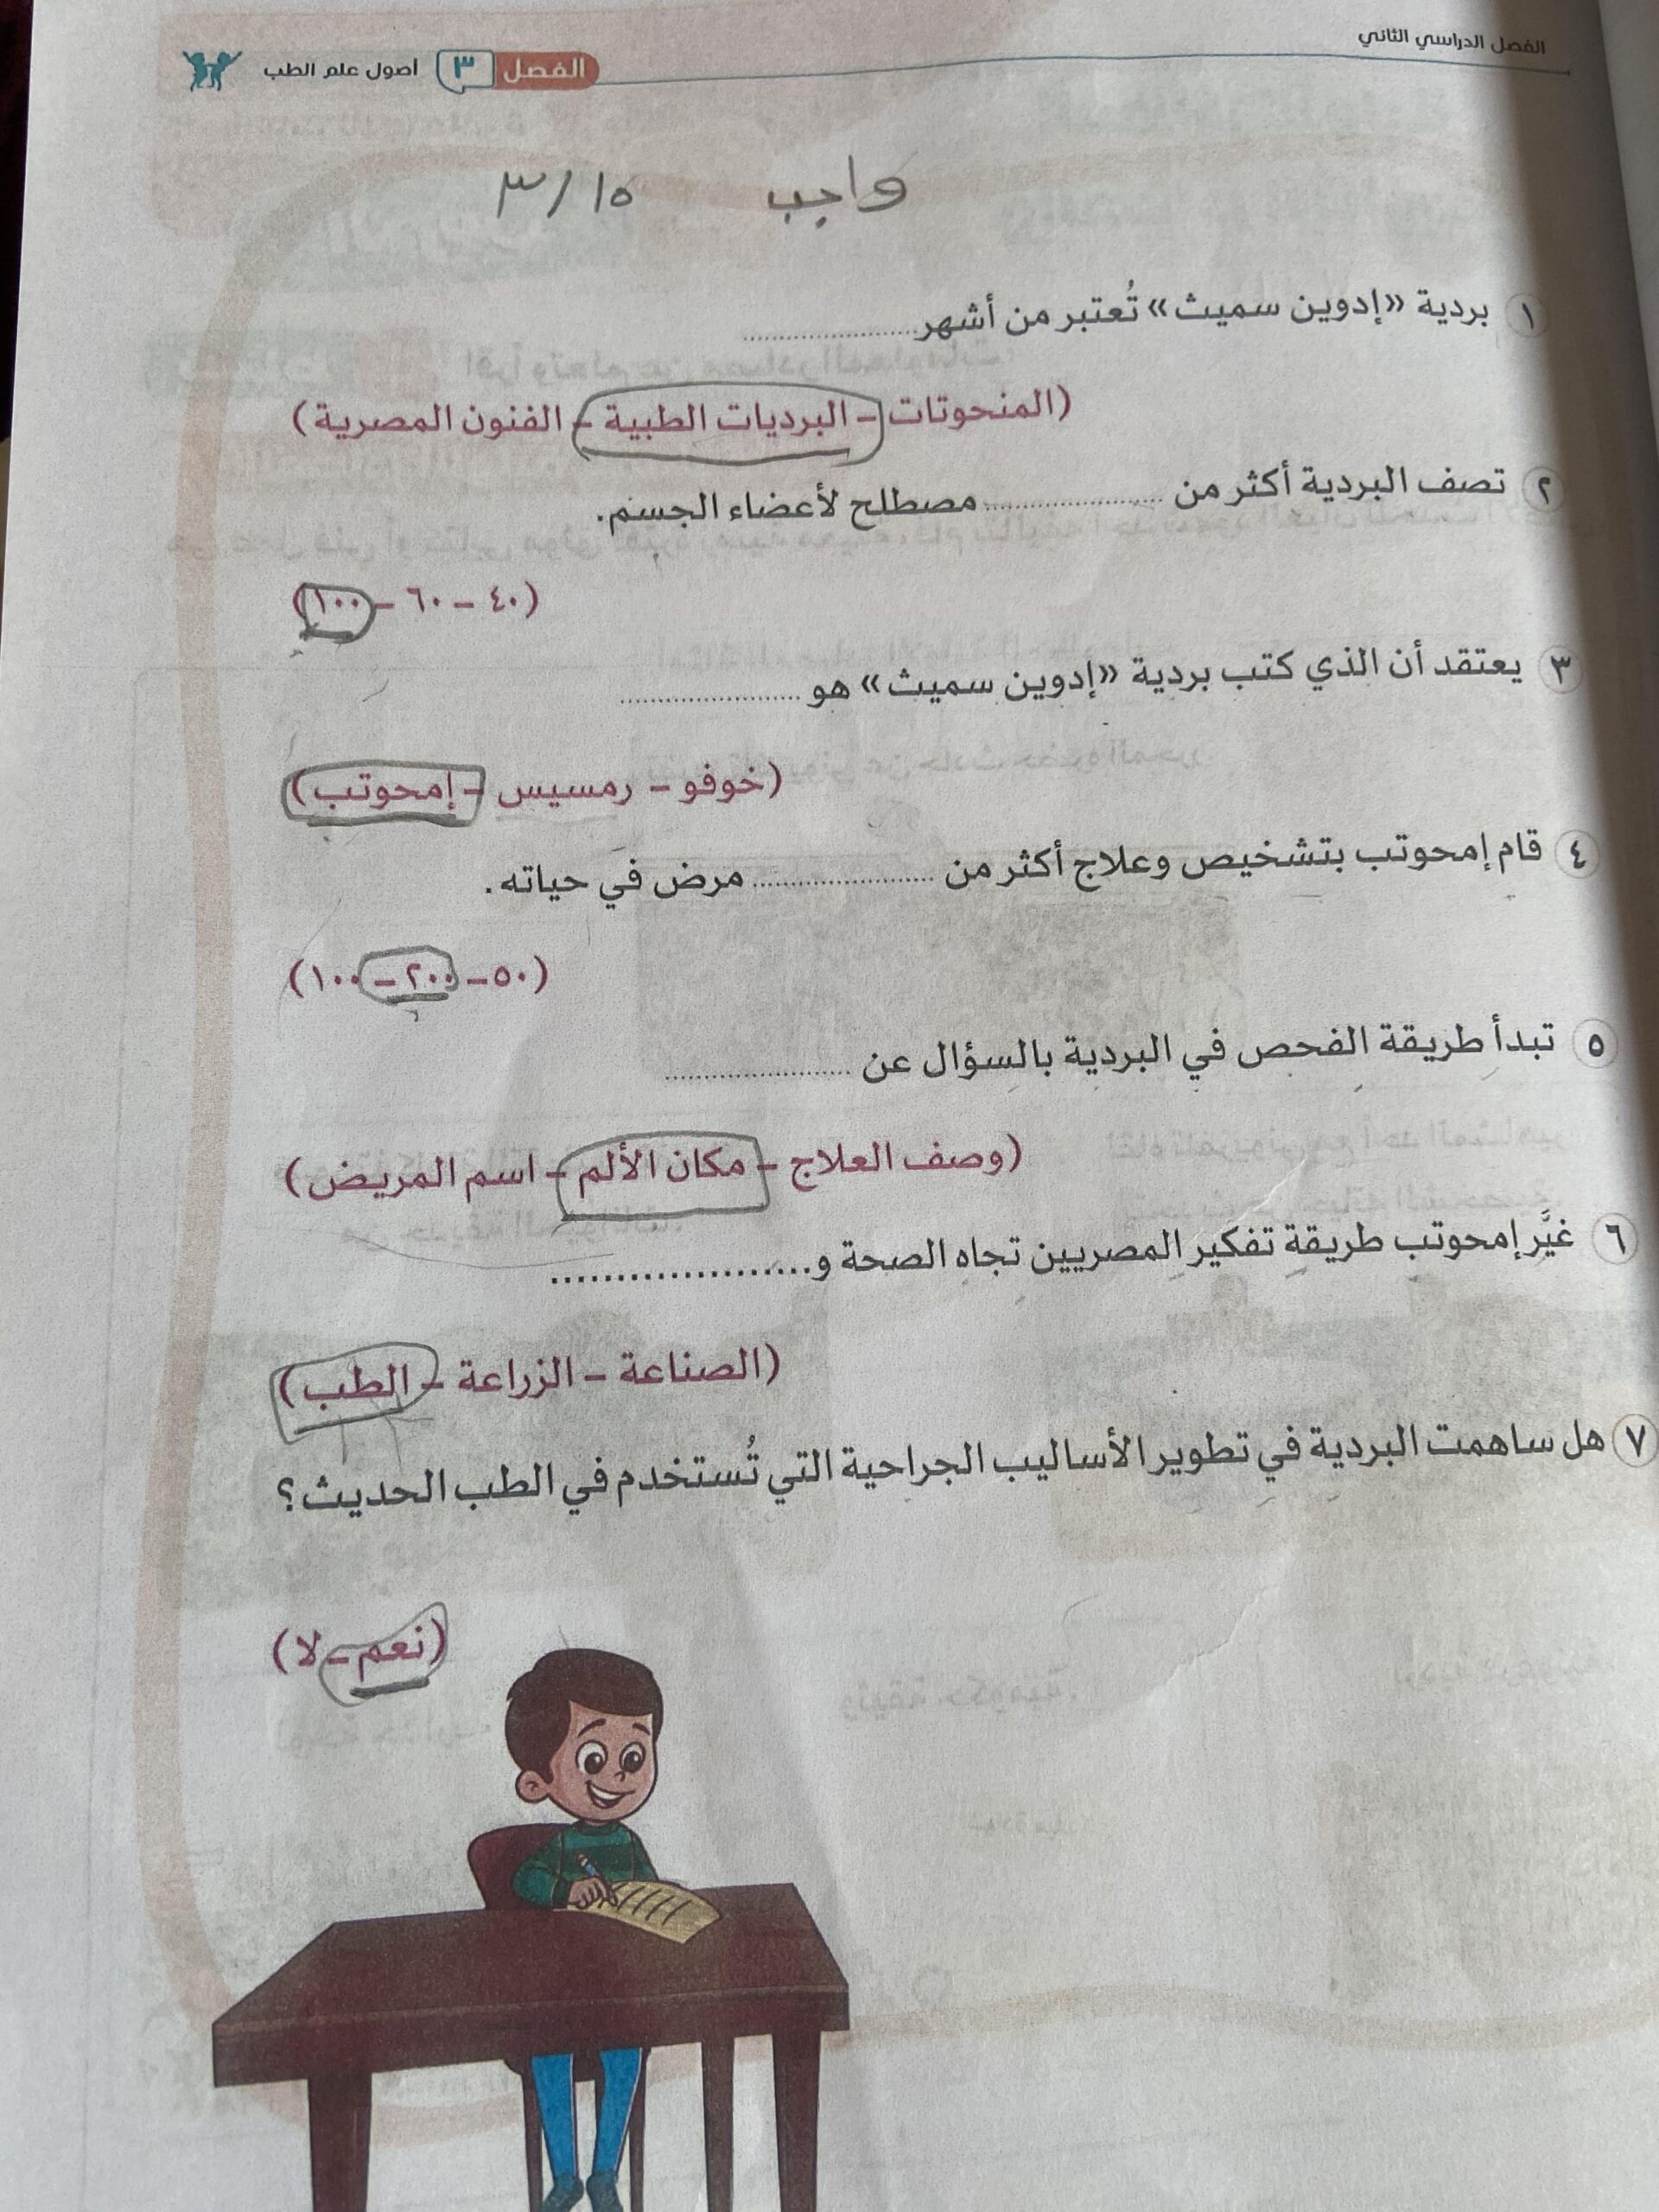 الفصل الدراسي الثاني
الفصل ٣ أصول علم الطب
واجب ١٥/٣
١ بردية «إدوين سميث» تُعتبر من أشهر....................
(المنحوتات – البرديات الطبية – الفنون المصرية)
٢ تصف البردية أكثر من .................... مصطلح لأعضاء الجسم.
(٤٠ – ٦٠ – ١٠٠)
٣ يعتقد أن الذي كتب بردية «إدوين سميث» هو ....................
(خوفو – رمسيس – إمحوتب)
٤ قام إمحوتب بتشخيص وعلاج أكثر من .................... مرض في حياته.
(٥٠ – ٢٠٠ – ١٠٠)
٥ تبدأ طريقة الفحص في البردية بالسؤال عن ....................
(وصف العلاج – مكان الألم – اسم المريض)
٦ غيَّر إمحوتب طريقة تفكير المصريين تجاه الصحة و....................
(الصناعة – الزراعة – الطب)
٧ هل ساهمت البردية في تطوير الأساليب الجراحية التي تُستخدم في الطب الحديث؟
(نعم – لا)